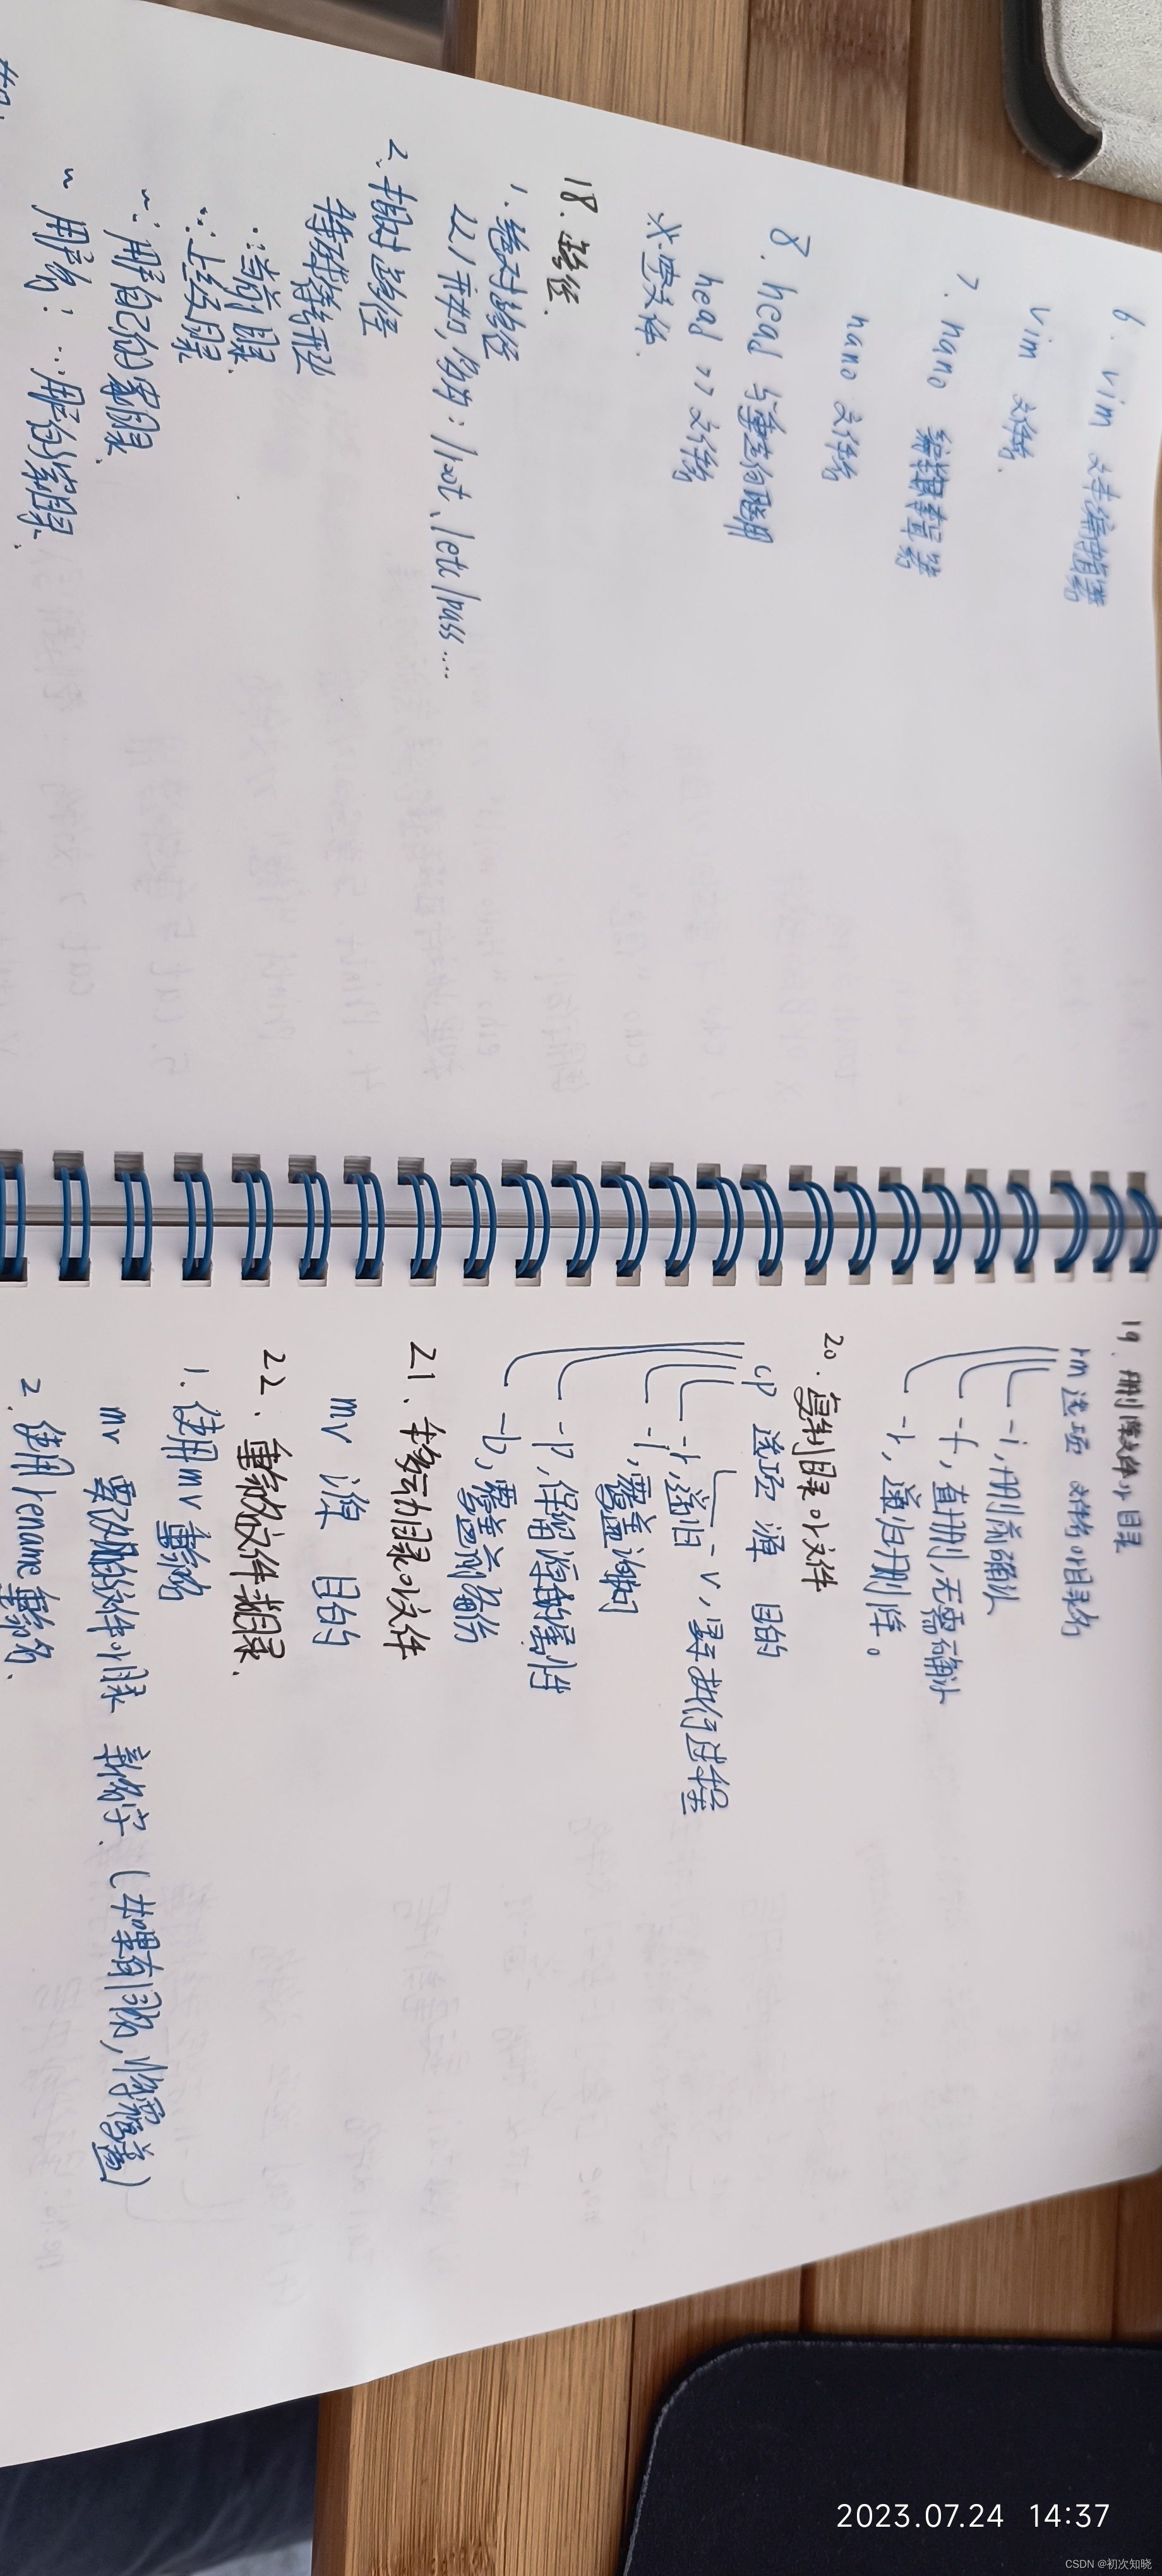 6. vim 文本编辑器
vim 文件名.
7. nano 编辑器
nano 文件名
8. head 与重定向联用
head >> 文件名
※空文件.
18. 路径.
1. 绝对路径
以/开扣, 例如: /root、/etc/pass....
2、相对路径
特殊符号
.:当前目录.
..:上级目录
~: 用户自己的家目录.
~用户名: 用户的家目录.
19. 删除文件or目录
rm 选项 文件名or目录名
-i, 删前确认
-f, 直删,无需确认
-r, 递归删除。
20. 复制目录or文件
cp 选项 源 目的
-r, 递归 -v, 显示执行过程
-i, 覆盖询问
-p, 保留源的属性
-b, 覆盖前备份
21、移动目录or文件
mv 源 目的
22、重命名文件或目录.
1. 使用mv 重命名
mv 要改的文件or目录 新名字. (如果有同名,将覆盖)
2. 使用rename重命名.
2023.07.24 14:37
CSDN @初次知晓